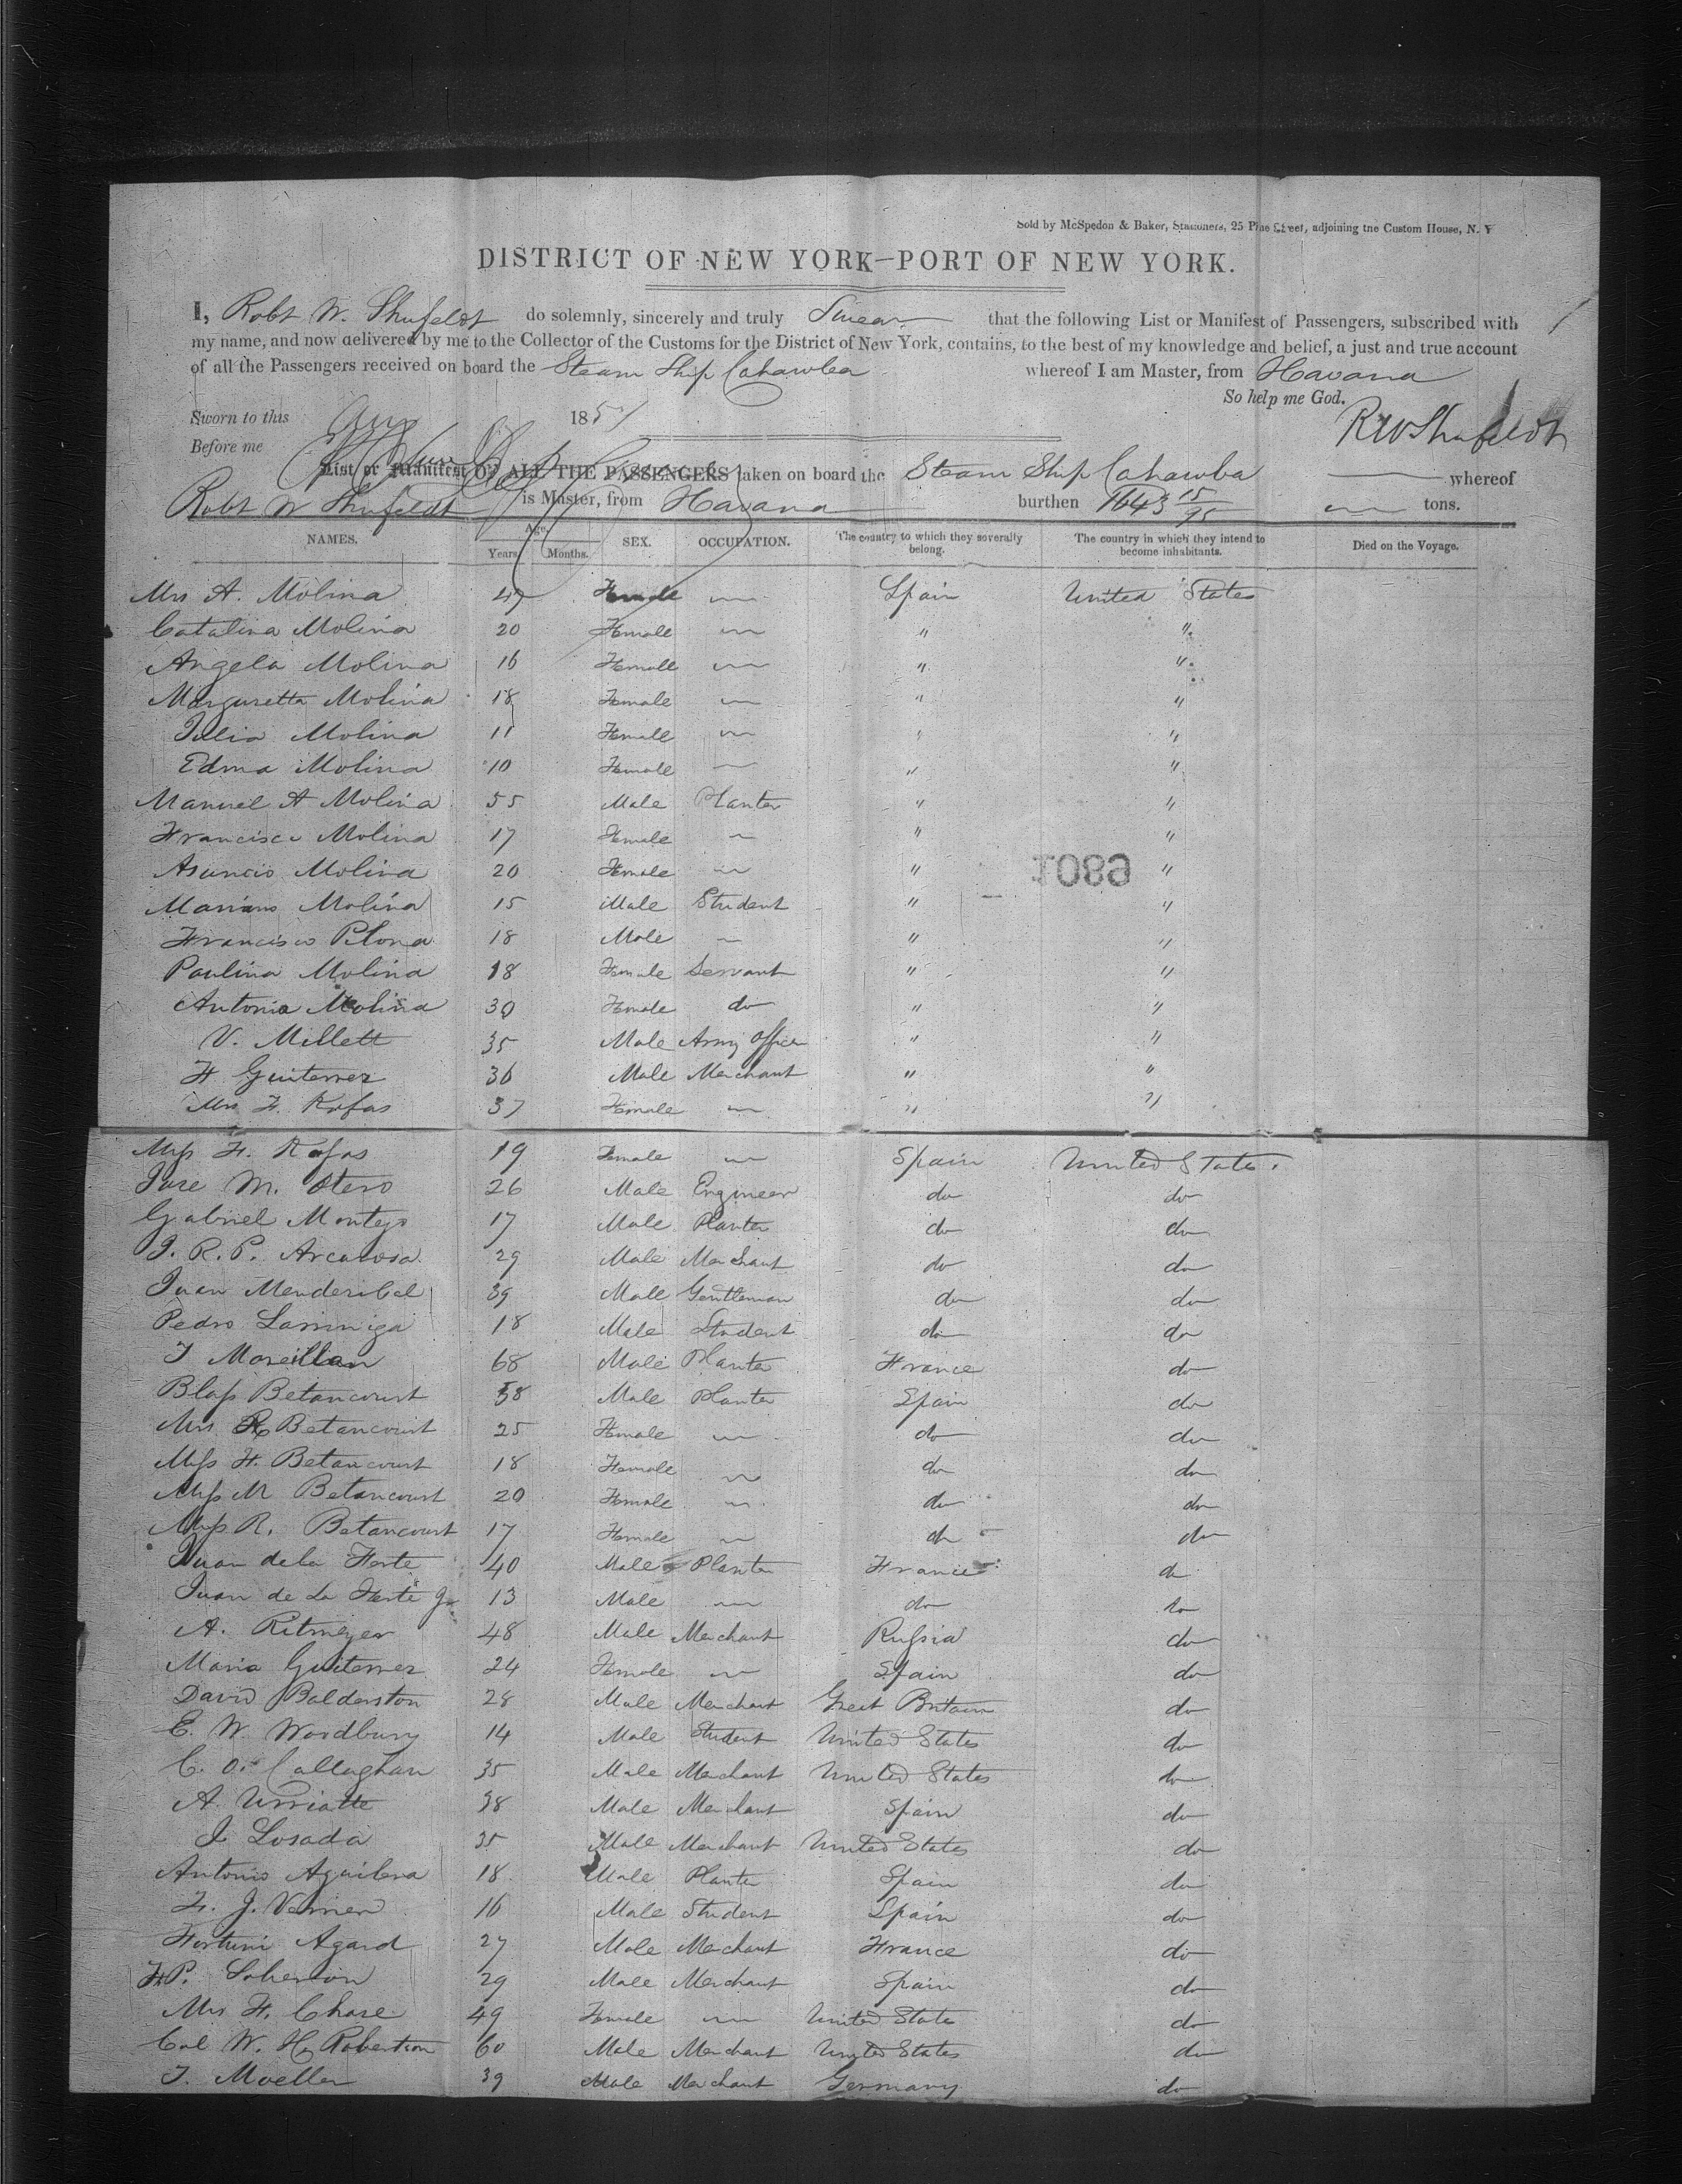 Sold by McSpedon & Baker, Stationers, 25 Pine Street, adjoining the Custom House, N. Y
DISTRICT OF NEW YORK—PORT OF NEW YORK.
I, Robt W. Shufeldt do solemnly, sincerely and truly Swear that the following List or Manifest of Passengers, subscribed with
my name, and now delivered by me to the Collector of the Customs for the District of New York, contains, to the best of my knowledge and belief, a just and true account
of all the Passengers received on board the Steam Ship Cahawba whereof I am Master, from Havana
So help me God.
Sworn to this 185
RWShufeldt
Before me
List or Manifest OF ALL THE PASSENGERS taken on board the Steam Ship Cahawba whereof
Robt W Shufeldt is Master, from Havana burthen 1643 15/95 tons.
NAMES. Age. Years. Months. SEX. OCCUPATION. The country to which they severally belong. The country in which they intend to become inhabitants. Died on the Voyage.
Mrs A. Molina Female — Spain United States
Catalina Molina 20 Female — " "
Angela Molina 16 Female — " "
Margaretta Molina 18 Female — " "
Julia Molina 11 Female — " "
Edma Molina 10 Female — " "
Manuel A Molina 55 Male Planter " "
Francisca Molina 17 Female — " "
Asuncio Molina 20 Female — " "
1089
Mariano Molina 15 Male Student " "
Francisco Pilona 18 Male — " "
Paulina Molina 18 Female Servant " "
Antonia Molina 30 Female do " "
V. Millett 35 Male Army Officer " "
F Guiterrez 36 Male Merchant " "
Mrs F. Rofas 37 Female — " "
Miss F. Rofas 19 Female — Spain United States.
Jose M. Otero 26 Male Engineer do do
Gabriel Montejo 17 Male Planter do do
J. R. P. 29 Male Merchant do do
Juan Menderibel 39 Male Gentleman do do
Pedro Larriniga 18 Male Student do do
J Moreillan 68 Male Planter France do
Blass Betancourt 38 Male Planter Spain do
Mrs Betancourt 25 Female — do do
Miss F. Betancourt 18 Female — do do
Miss M Betancourt 20 Female — do do
Miss R. Betancourt 17 Female — do do
Juan de la Ferte 40 Male Planter France do
Juan de La Ferte Jr 13 Male — do do
A. Ritmeyer 48 Male Merchant Russia do
Maria Guiterrez 24 Female — Spain do
David Balderston 28 Male Merchant Great Britain do
E. W. Woodbury 14 Male Student United States do
C. O. Callaghan 35 Male Merchant United States do
A. Urriatte 38 Male Merchant Spain do
J Losada 35 Male Merchant United States do
Antonio Aguilera 18 Male Planter Spain do
F. J. Verrier 16 Male Student Spain do
Fortuni Agard 27 Male Merchant France do
F. P. 29 Male Merchant Spain do
Mrs F. Chase 49 Female — United States do
Col W. H. Robertson 60 Male Merchant United States do
J. Moeller 39 Male Merchant Germany do